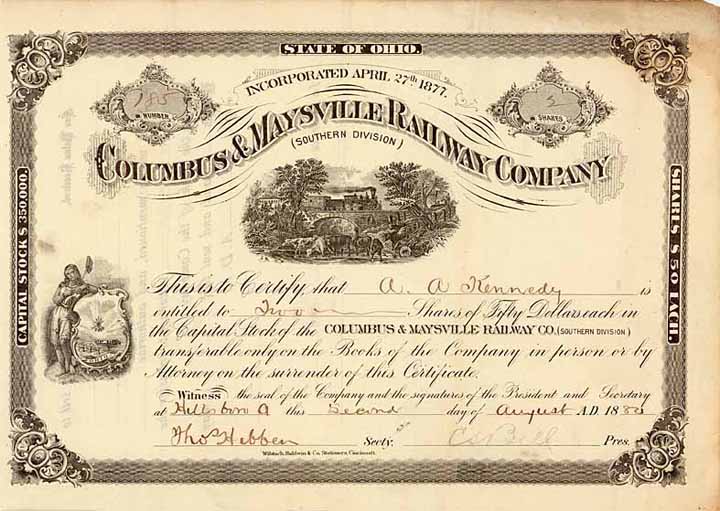 STATE OF OHIO.
INCORPORATED APRIL 27th 1877.
785
NUMBER
2
SHARES
COLUMBUS & MAYSVILLE RAILWAY COMPANY
(SOUTHERN DIVISION)
CAPITAL STOCK $ 350,000.
SHARES $ 50 EACH.
This is to Certify, that A. A Kennedy is
entitled to Two Shares of Fifty Dollars each in
the Capital Stock of the COLUMBUS & MAYSVILLE RAILWAY CO. (SOUTHERN DIVISION)
transferable only on the Books of the Company in person or by
Attorney on the surrender of this Certificate.
Witness the seal of the Company and the signatures of the President and Secretary
at Hillsboro O this Second day of August A.D. 1880
Thos Hibben Secty. C S Bell Pres.
Wilstach, Baldwin & Co. Stationers, Cincinnati.